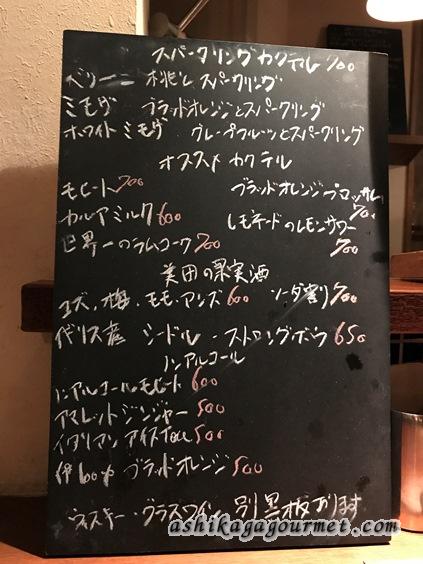 スパークリングカクテル 700
ベリーニ 桃とスパークリング
ミモザ ブラッドオレンジとスパークリング
ホワイトミモザ グレープフルーツとスパークリング
オススメカクテル
モヒート 700 ブラッドオレンジブロッサム 700
カルアミルク 600 レモネードのレモンサワー 700
世界一のラムコーク 700
美田の果実酒
ユズ、梅、モモ・アンズ 600 ソーダ割り 700
イギリス産 シードル・ストロングボウ 650
ノンアルコール
ノンアルコールモヒート 600
アマレットジンジャー 500
イタリアンアイスTea 500
伊100% ブラッドオレンジ 500
ウィスキー・グラスワイン 別黒板あります
ashikagagourmet.com